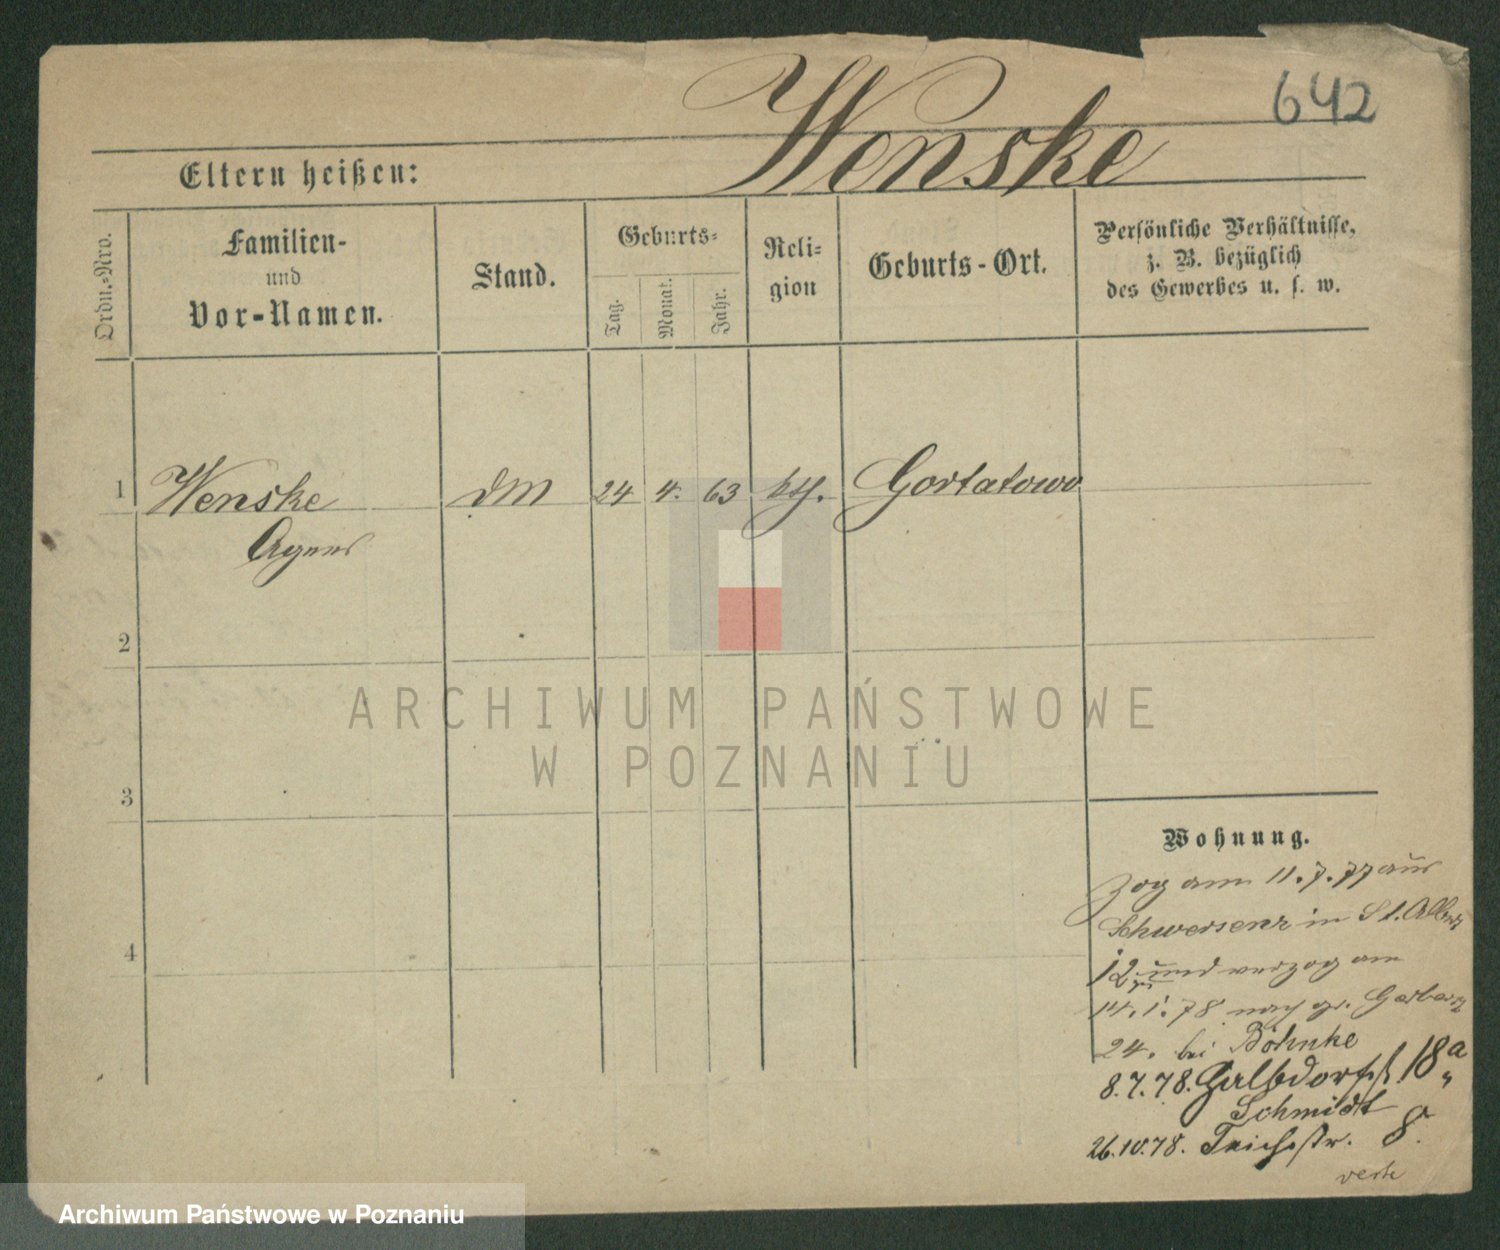 642
Wenske
Eltern heißen:
Ordn.-Nro.
Familien-
und
Vor-Namen.
Stand.
Geburts-
Tag.
Monat.
Jahr.
Reli-
gion
Geburts-Ort.
Persönliche Verhältnisse,
z. B. bezüglich
des Gewerbes u. s. w.
1 Wenske DM 24 4. 63 kth. Gortatowo
Agnes
2
3
4
ARCHIWUM PAŃSTWOWE
W POZNANIU
Wohnung.
Zog am 11.7.77 aus
Schwersenz in St. Adalb
12 und verzog am
14.1.78 nach gr. Gerber
24. bei Böhnke
8.7.78. Halbdorfst 18a
Schmidt
26.10.78. Teichstr. 8.
verte
Archiwum Państwowe w Poznaniu